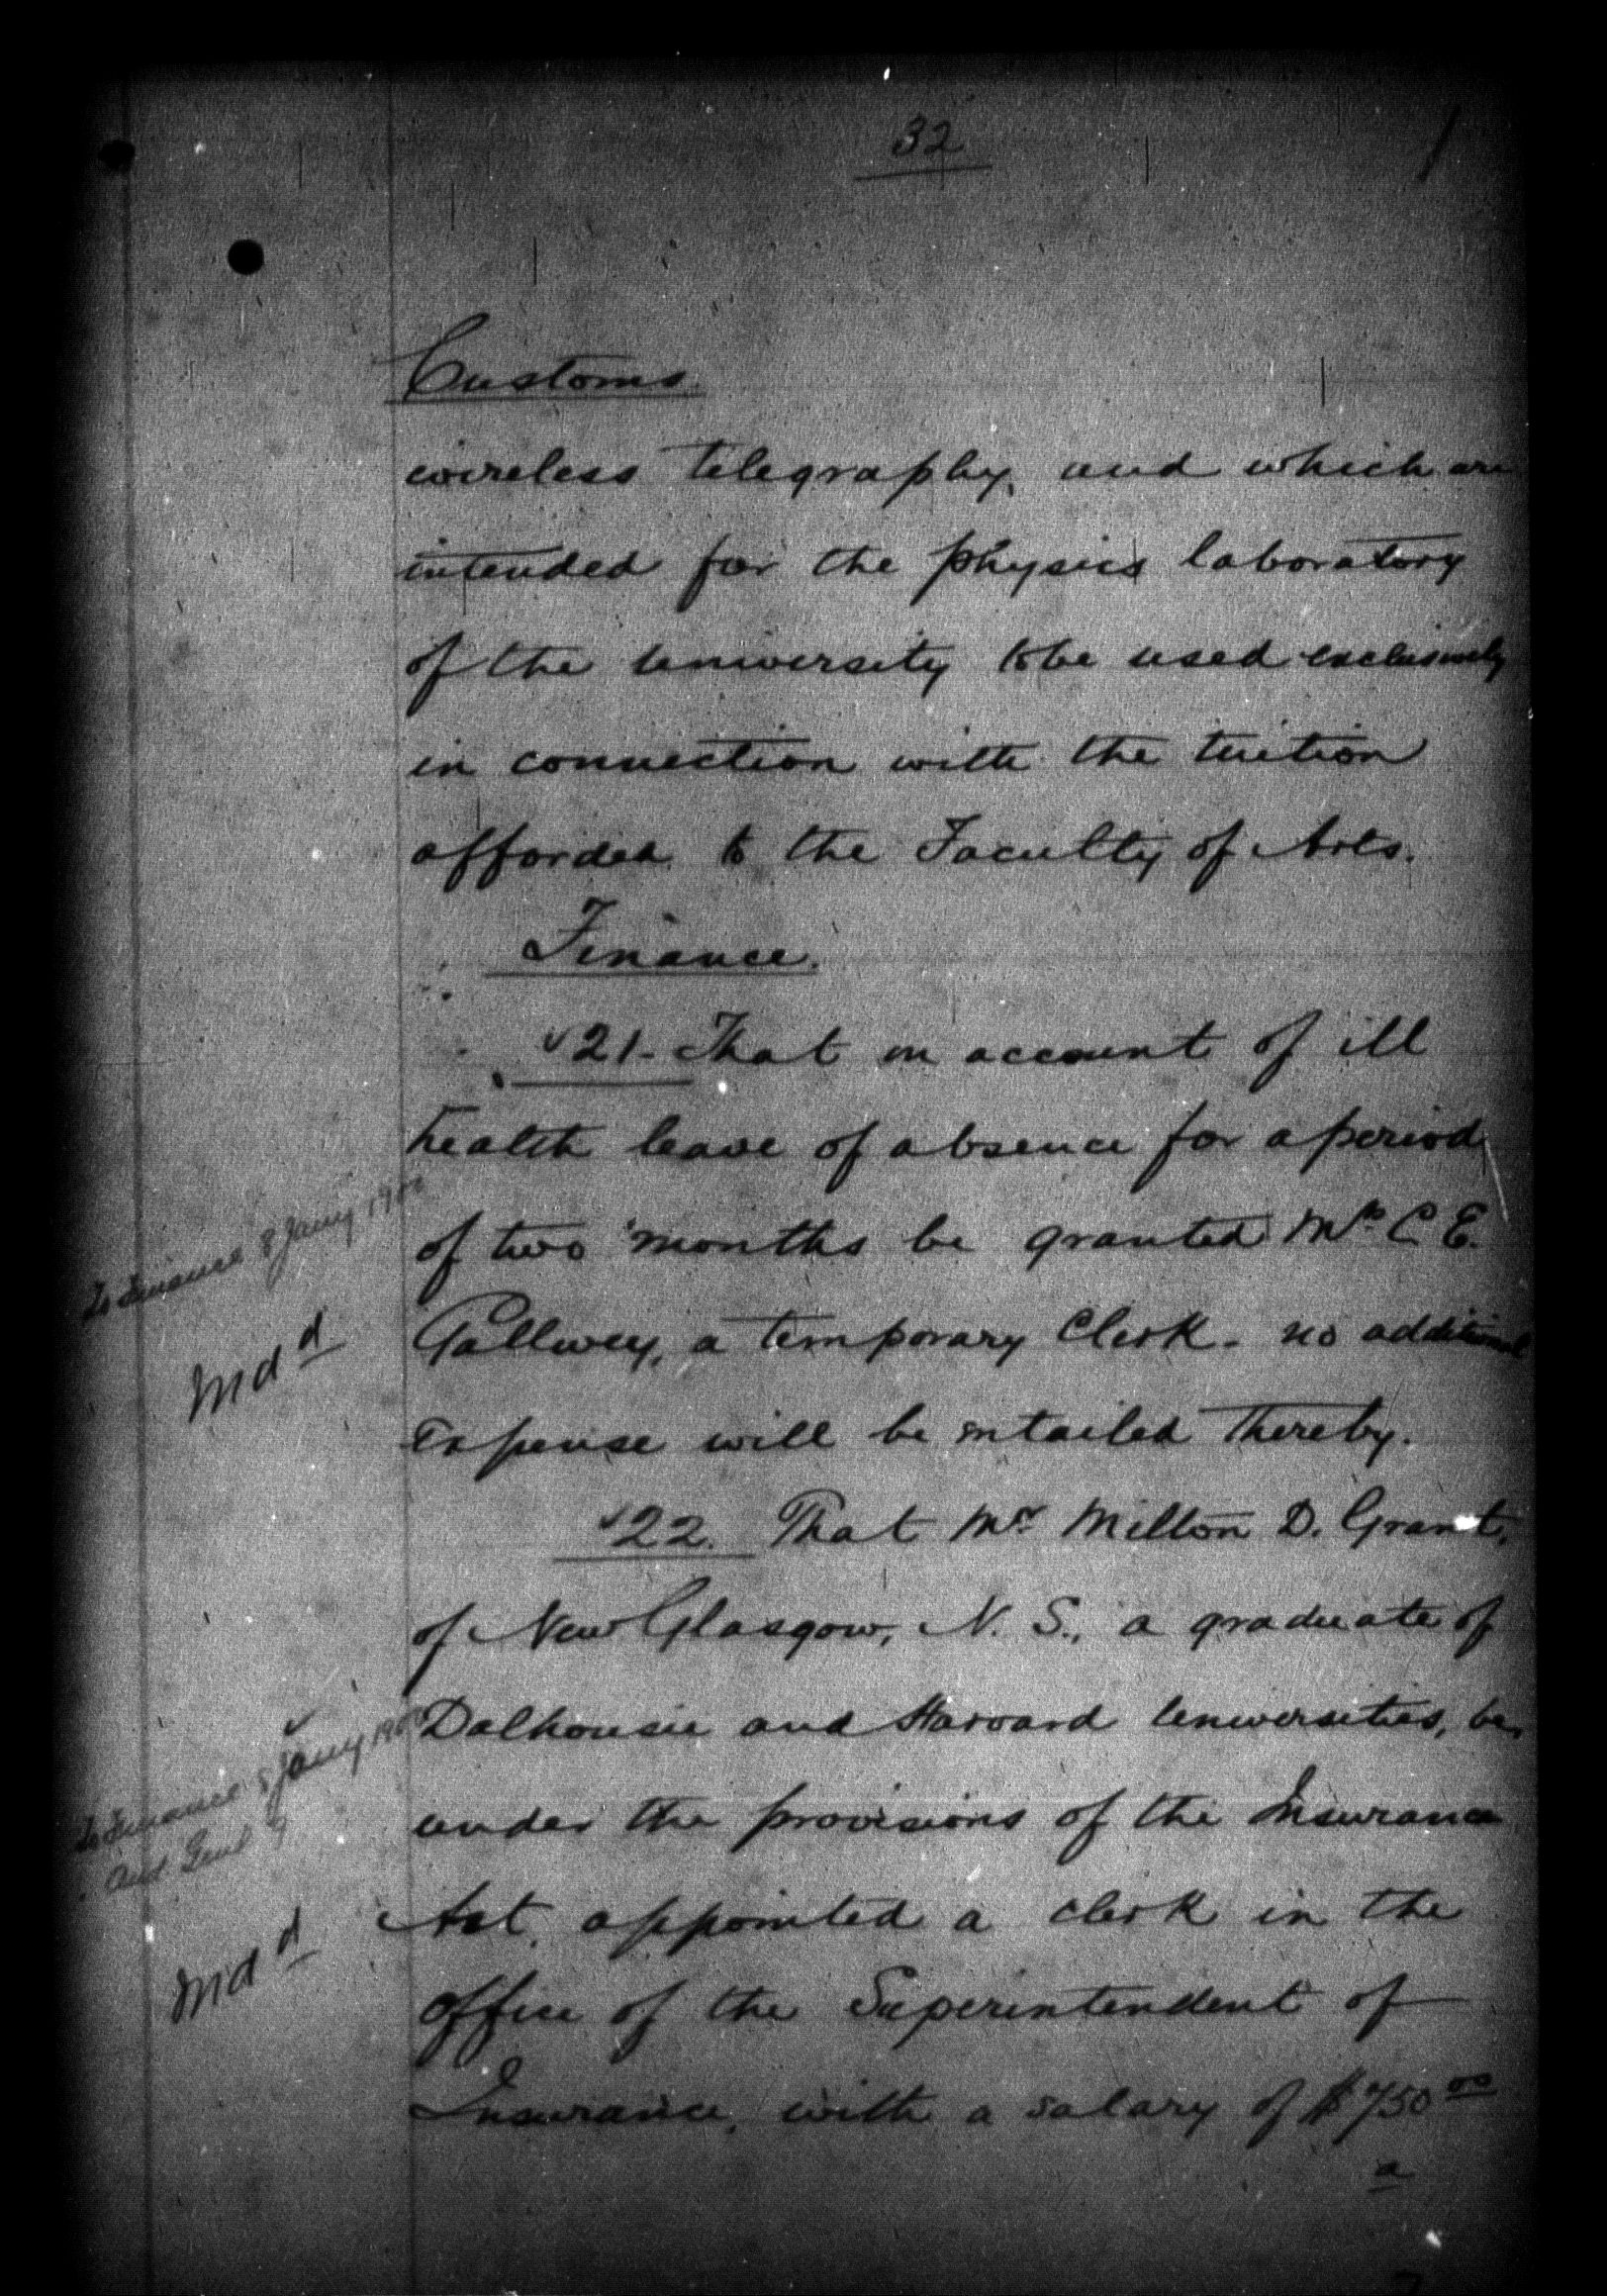 32
Customs.
wireless telegraphy, and which are
intended for the physics laboratory
of the university to be used exclusively
in connection with the tuition
afforded to the Faculty of Arts.
Finance.
21. That on account of ill
health leave of absence for a period
of two months be granted Mr C. E.
Gallwey, a temporary Clerk. no additional
expense will be entailed thereby.
22. That Mr Milton D. Grant,
of New Glasgow, N. S., a graduate of
Dalhousie and Harvard Universities, be,
under the provisions of the Insurance
Act, appointed a clerk in the
office of the Superintendent of
Insurance, with a salary of $750 00
a
To Finance 8 Jany
Md d
To Finance 8 Jany
Aud Genl 9
Md d